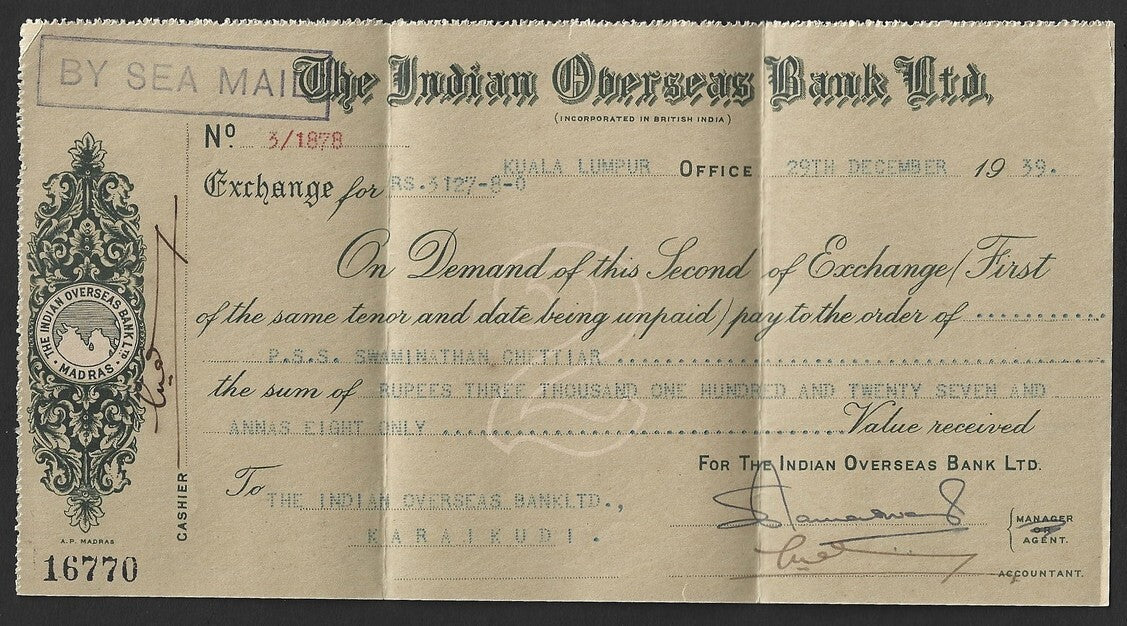 BY SEA MAIL
The Indian Overseas Bank Ltd.
(INCORPORATED IN BRITISH INDIA)
Nº 3/1878
KUALA LUMPUR OFFICE 29TH DECEMBER 19 39.
Exchange for RS.3127-8-0
On Demand of this Second of Exchange (First
of the same tenor and date being unpaid) pay to the order of
P.S.S. SWAMINATHAN CHETTIAR
the sum of RUPEES THREE THOUSAND ONE HUNDRED AND TWENTY SEVEN AND
ANNAS EIGHT ONLY Value received
FOR THE INDIAN OVERSEAS BANK LTD.
To THE INDIAN OVERSEAS BANKLTD.,
KARAIKUDI.
MANAGER
OR
AGENT.
ACCOUNTANT.
CASHIER
THE INDIAN OVERSEAS BANK LTD.
MADRAS
A.P. MADRAS
16770
2